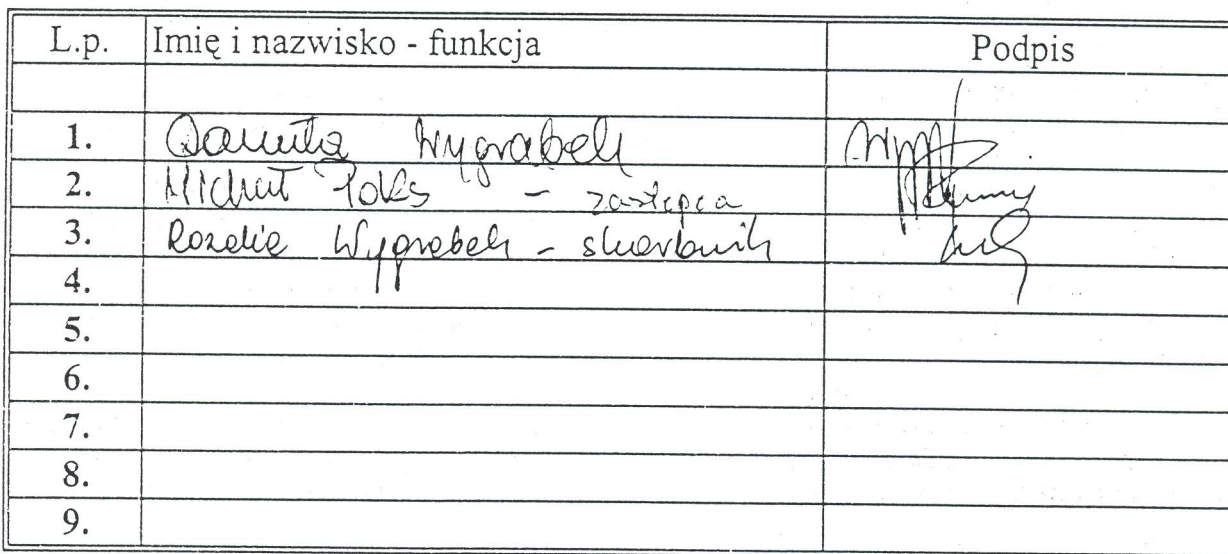 L.p. Imię i nazwisko - funkcja Podpis
1. Danuta Wygrabek
2. Michał Poks - zastępca
3. Rozalia Wygrabek - skarbnik
4.
5.
6.
7.
8.
9.